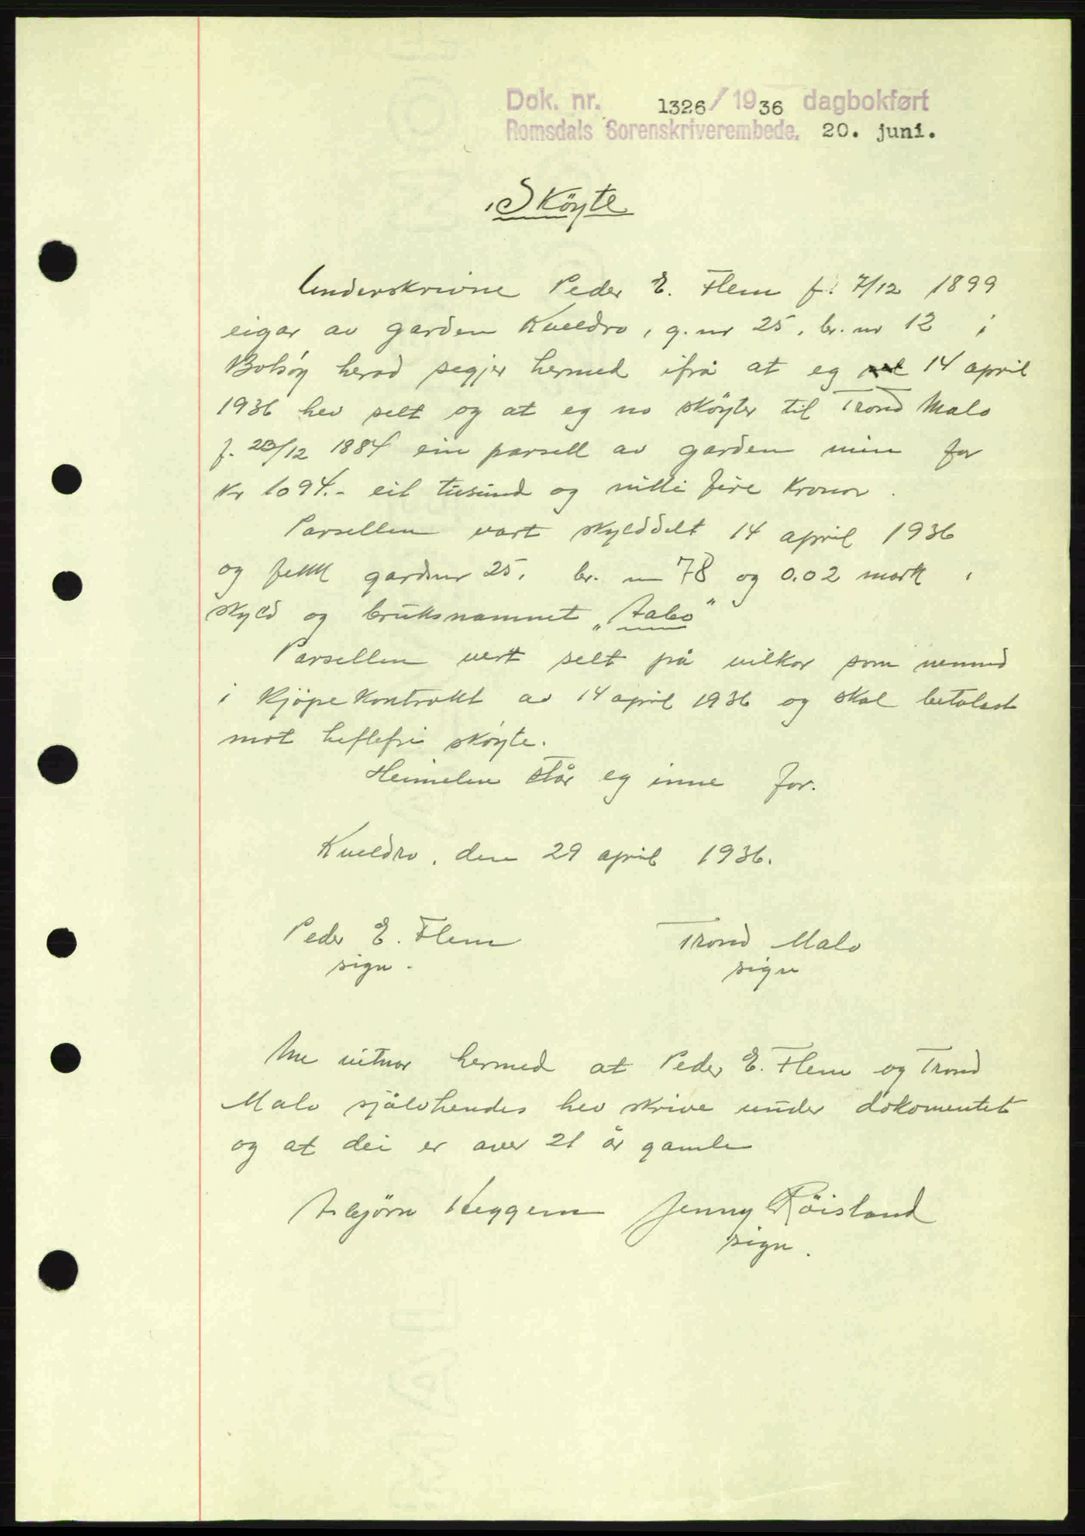 Dok. nr. 1326/1936 dagbokført
Romsdals Sorenskriverembede. 20. juni.
Sköyte
Underskrivne Peder E. Flem f. 7/12 1899
eigar av garden Kveldro, g. nr 25, br. nr 12 i
Bolsöy herad segjer hermed ifrå at eg 14 april
1936 hev selt og at eg no sköyter til Trond Malo
f. 23/12 1884 ein parsell av garden min for
Kr 1094.- eit tusund og nitti fire Kronor.
Parsellen vart skylddelt 14 april 1936
og fekk gardsnr 25, br. nr 78 og 0.02 mark i
skyld og bruksnamnet „Aabo"
Parsellen vert selt på vilkor som nemnd
i Kjöpekontrakt av 14 april 1936 og skal betalast
mot heftefri sköyte.
Heimelen står eg inne for.
Kveldro, den 29 april 1936.
Peder E. Flem Trond Malo
sign. sign
Me vitnar hermed at Peder E. Flem og Trond
Malo sjålvhendes hev skrive under dokumentet
og at dei er over 21 år gamle
Asbjörn Heggem Jenny Röisland
sign.